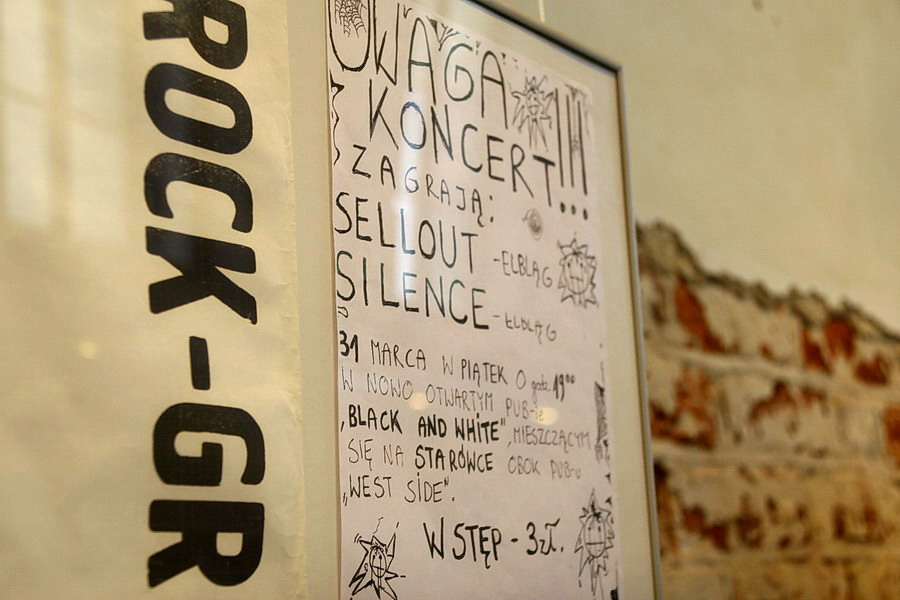 ROCK-GR
UWAGA!!!
KONCERT
ZAGRAJĄ:
SELLOUT -ELBLĄG
SILENCE -ELBLĄG
31 MARCA W PIĄTEK O godz. 19⁰⁰
W NOWO OTWARTYM PUB-ie
„BLACK AND WHITE", MIESZCZĄCYM
SIĘ NA STARÓWCE OBOK PUB-u
„WEST SIDE".
WSTĘP - 3zł.